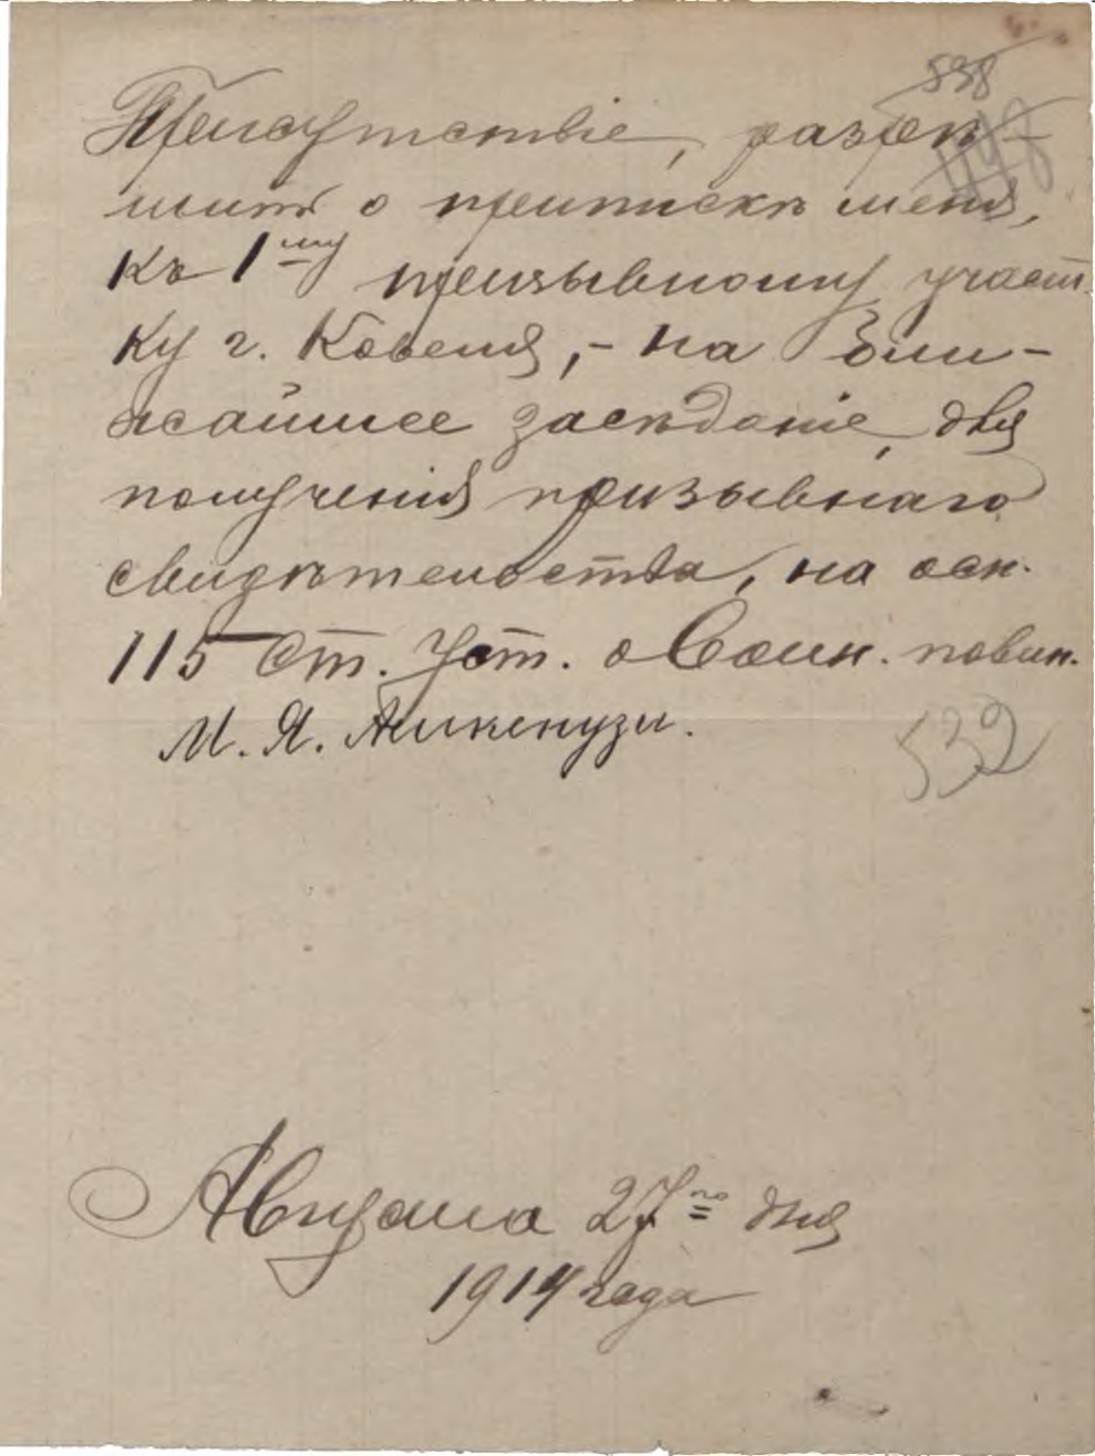 538
Присутствіе, разрѣ-
шить о припискѣ меня,
къ 1му призывному участ-
ку г. Ковеля, - на бли-
жайшее засѣданіе, для
полученія призывнаго
свидѣтельства, на осн.
115 ст. Уст. о Воин. повин.
М. Я.
532
Августа 27го дня
1914 года